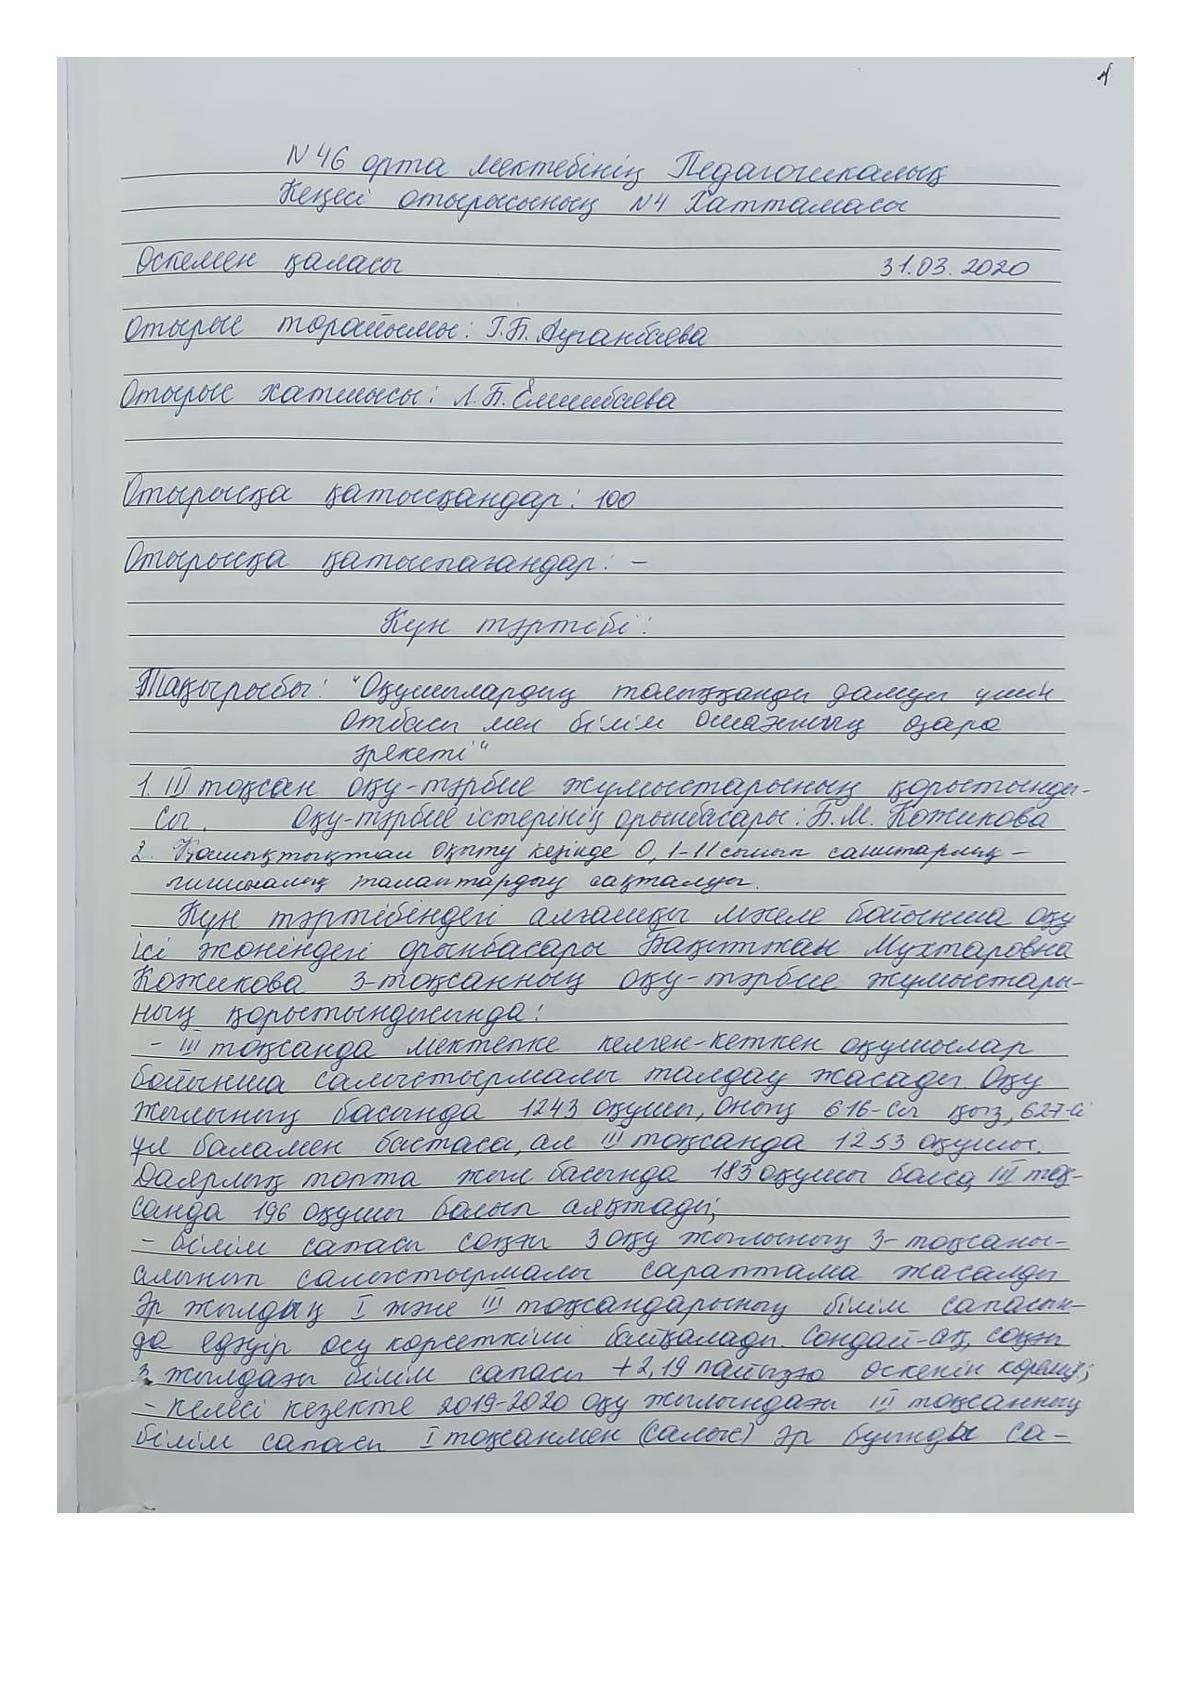 N 46 орта мектебінің Педагогикалық
Кеңесі отырысының N4 Хаттамасы
Өскемен қаласы 31.03.2020
Отырыс төрайымы: Г.Б. Ауганбаева
Отырыс хатшысы: Л.Б. Елишбаева
Отырысқа қатысқандар: 100
Отырысқа қатыспағандар: –
Күн тәртібі:
Тақырыбы: "Оқушылардың толыққанды дамуы үшін
Отбасы мен білім ошағының өзара
әрекеті"
1. III тоқсан оқу-тәрбие жұмыстарының қорытынды-
сы. Оқу-тәрбие істерінің орынбасары: Б.М. Кожикова
2. Қашықтықтан оқыту кезінде 0, 1-11 сынып санитарлық –
гигиеналық талаптардың сақталуы.
Күн тәртібіндегі алғашқы мәселе бойынша оқу
ісі жөніндегі орынбасары Бақытжан Мухтаровна
Кожикова 3-тоқсанның оқу-тәрбие жұмыстары-
ның қорытындысында:
- III тоқсанда мектепке келген-кеткен оқушылар
бойынша салыстырмалы талдау жасады. Оқу
жылының басында 1243 оқушы, оның 616-сы қыз, 627-сі
ұл баламен бастаса, ал III тоқсанда 1253 оқушы.
Даярлық топта жыл басында 183 оқушы болса, III тоқ-
санда 196 оқушы болып аяқтады;
- білім сапасы соңғы 3 оқу жылының 3-тоқсаны-
алынып салыстырмалы сараптама жасалды
Әр жылдың I және III тоқсандарының білім сапасын-
да едәуір өсу көрсеткіші байқалады. Сондай-ақ, соңғы
3 жылдағы білім сапасы +2,19 пайызға өскенін көреміз;
- келесі кезекте 2019-2020 оқу жылындағы III тоқсанның
білім сапасы I тоқсанмен (салыс) әр буынды са-